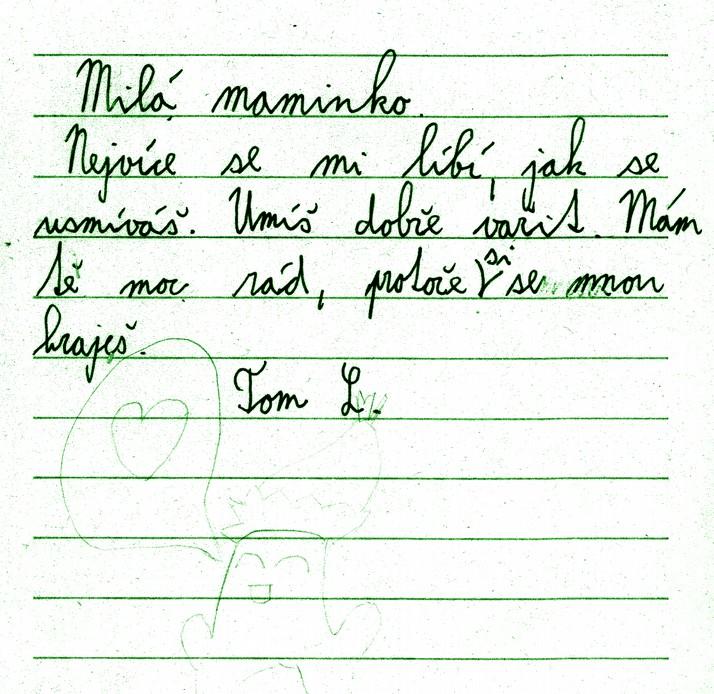 Milá maminko.
Nejvíce se mi líbí, jak se
usmíváš. Umíš dobře vařit. Mám
tě moc rád, protože si se mnou
hraješ.
Tom L.